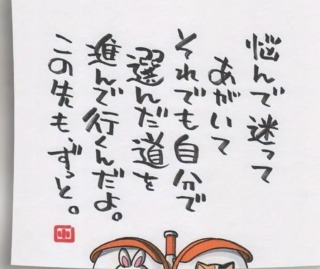 悩んで迷って
あがいて
それでも自分で
選んだ道を
進んで行くんだよ。
この先も、ずっと。